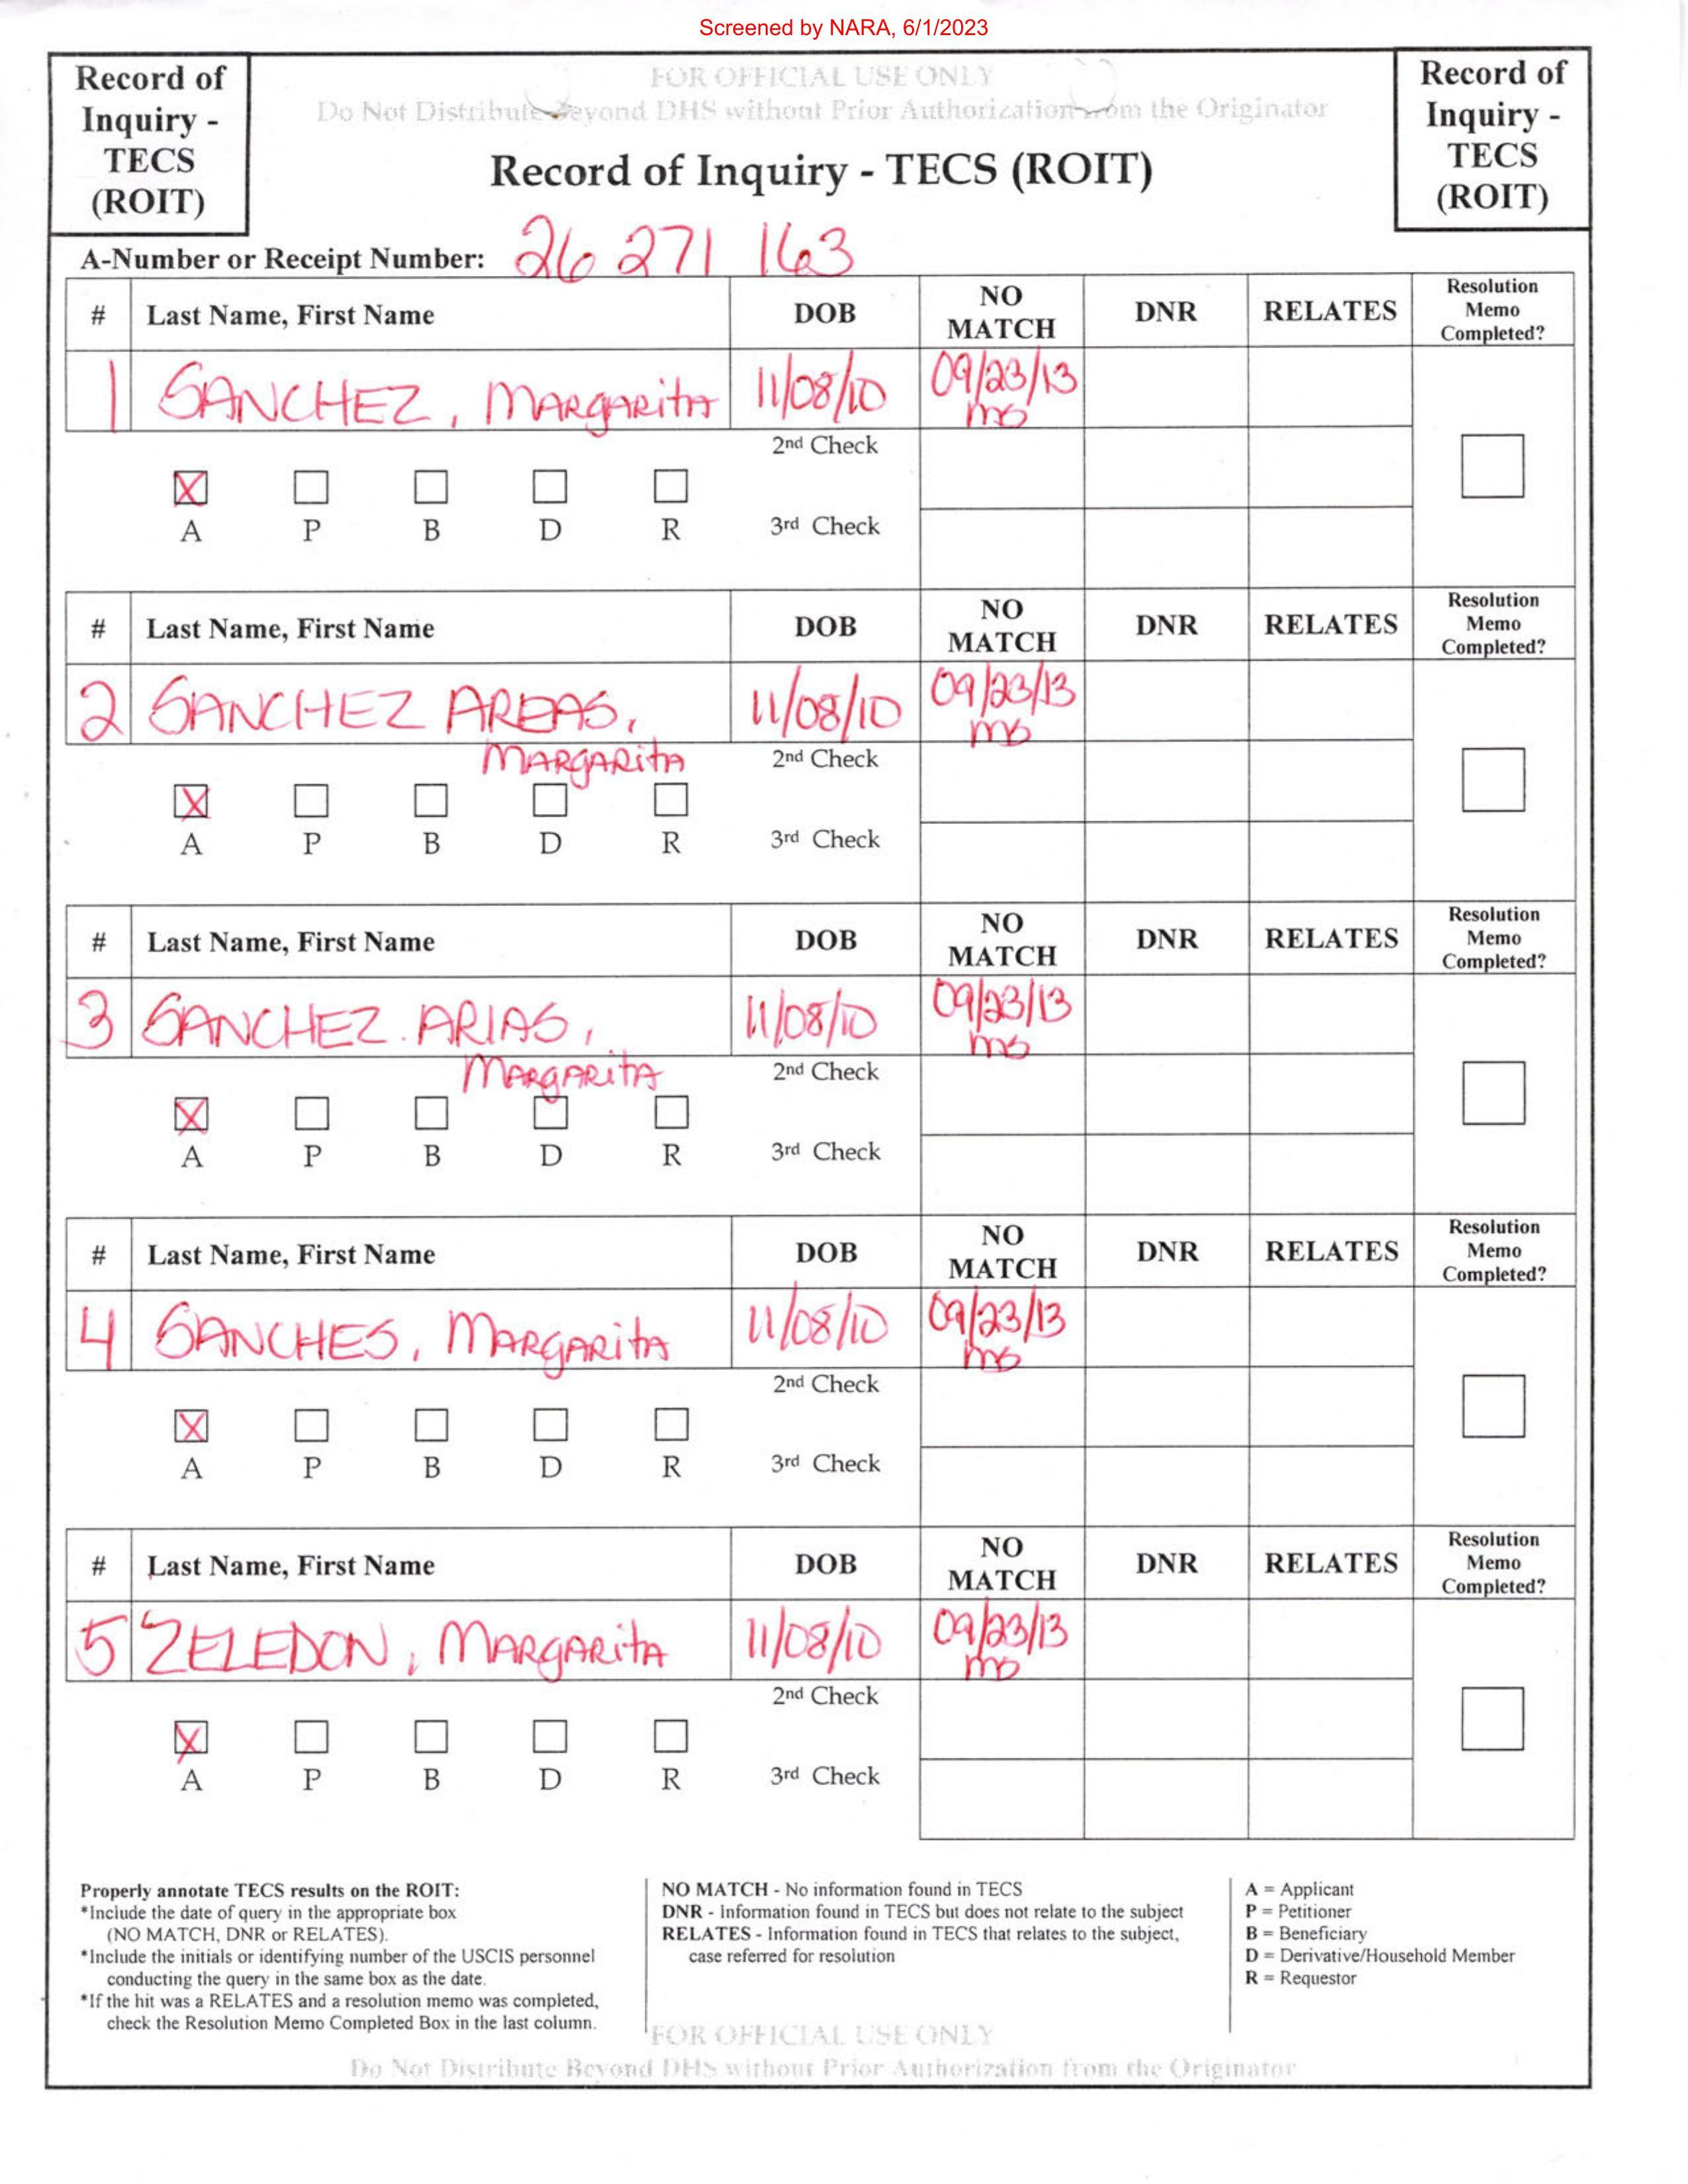 Screened by NARA, 6/1/2023
Record of Inquiry - TECS (ROIT)
FOR OFFICIAL USE ONLY
Do Not Distribute Beyond DHS without Prior Authorization from the Originator
Record of Inquiry - TECS (ROIT)
Record of Inquiry - TECS (ROIT)
A-Number or Receipt Number: 26 271 163
# Last Name, First Name DOB NO MATCH DNR RELATES Resolution Memo Completed?
1 SANCHEZ, MARGARITA 11/08/10 09/23/13 ms
2nd Check
X
A P B D R 3rd Check
# Last Name, First Name DOB NO MATCH DNR RELATES Resolution Memo Completed?
2 SANCHEZ AREAS, 11/08/10 09/23/13 ms
MARGARITA 2nd Check
X
A P B D R 3rd Check
# Last Name, First Name DOB NO MATCH DNR RELATES Resolution Memo Completed?
3 SANCHEZ ARIAS, 11/08/10 09/23/13 ms
MARGARITA 2nd Check
X
A P B D R 3rd Check
# Last Name, First Name DOB NO MATCH DNR RELATES Resolution Memo Completed?
4 SANCHES, MARGARITA 11/08/10 09/23/13 ms
2nd Check
X
A P B D R 3rd Check
# Last Name, First Name DOB NO MATCH DNR RELATES Resolution Memo Completed?
5 ZELEDON, MARGARITA 11/08/10 09/23/13 ms
2nd Check
X
A P B D R 3rd Check
Properly annotate TECS results on the ROIT:
*Include the date of query in the appropriate box
(NO MATCH, DNR or RELATES).
*Include the initials or identifying number of the USCIS personnel
conducting the query in the same box as the date.
*If the hit was a RELATES and a resolution memo was completed,
check the Resolution Memo Completed Box in the last column.
NO MATCH - No information found in TECS
DNR - Information found in TECS but does not relate to the subject
RELATES - Information found in TECS that relates to the subject,
case referred for resolution
A = Applicant
P = Petitioner
B = Beneficiary
D = Derivative/Household Member
R = Requestor
FOR OFFICIAL USE ONLY
Do Not Distribute Beyond DHS without Prior Authorization from the Originator